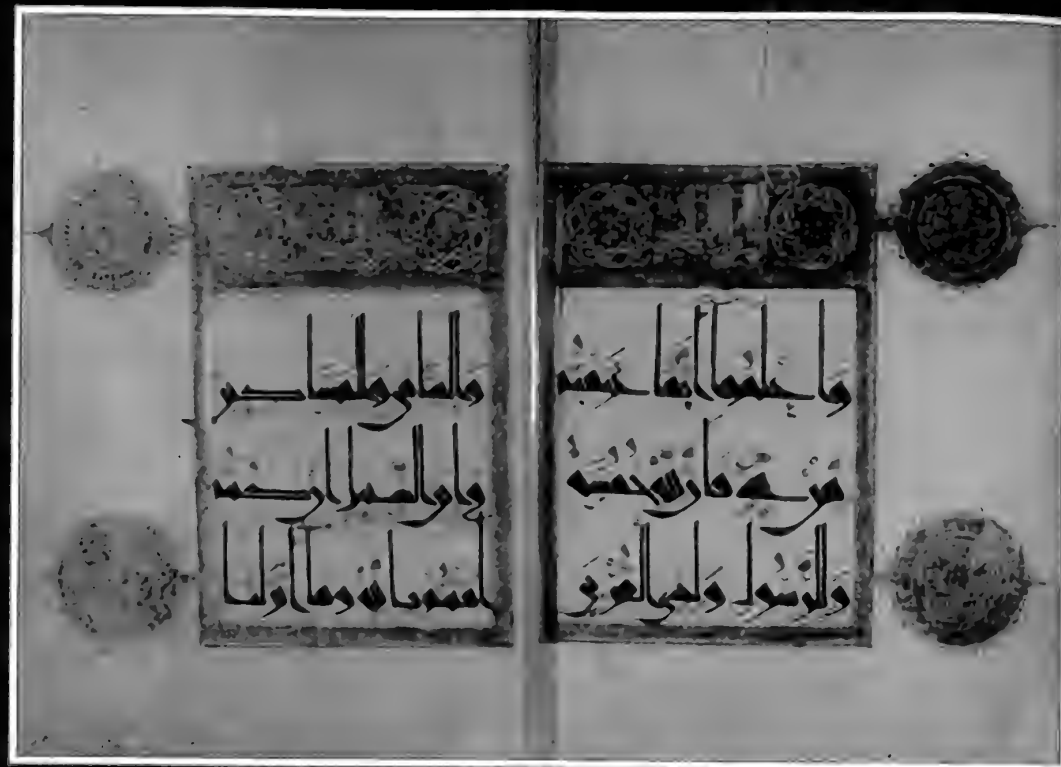 واعلموا أنما غنمتم
من شيء فأن لله خمسه
وللرسول ولذي القربى
واليتامى والمساكين
وابن السبيل إن كنتم
آمنتم بالله وما أنزلنا